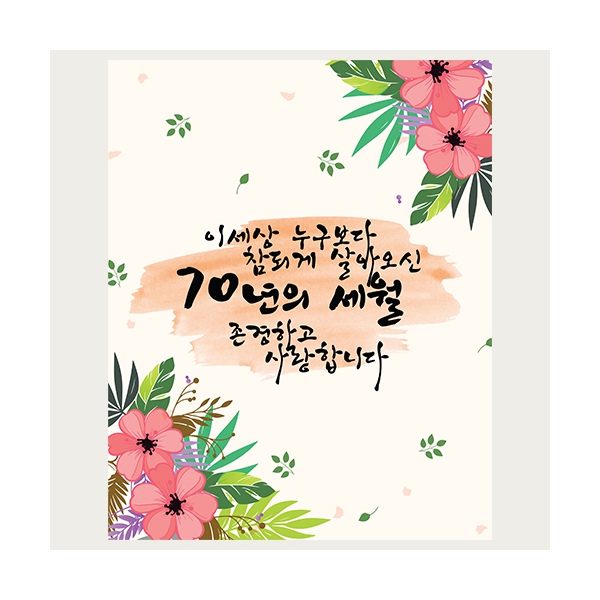 이세상 누구보다
참되게 살아오신
70년의 세월
존경하고
사랑합니다